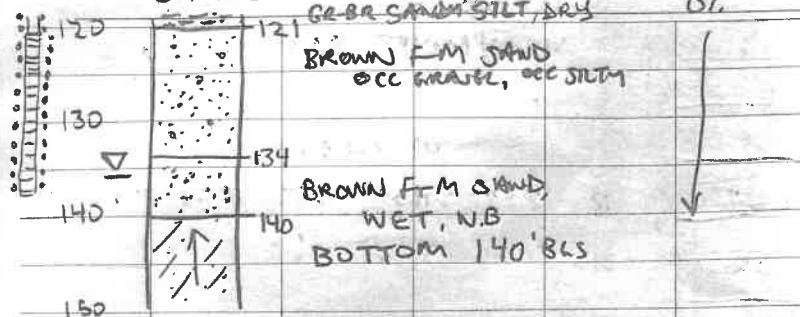 GR-BR SANDY SILT, DRY
0%
120
121
BROWN F-M SAND
OCC GRAVEL, OCC SILTY
130
134
BROWN F-M SAND,
140
140
WET, N.B
BOTTOM 140' BLS
150